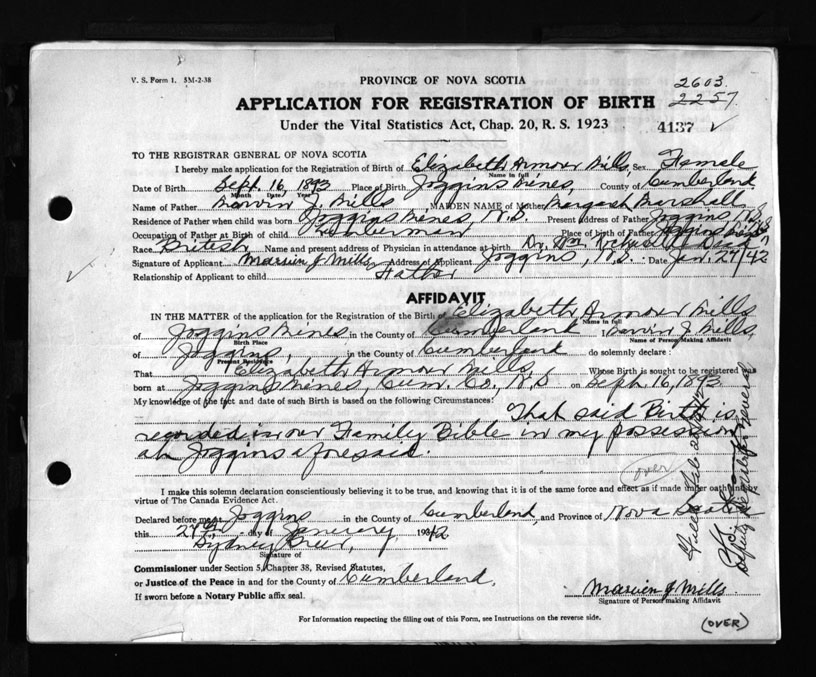 V. S. Form 1. 5M-2-38
PROVINCE OF NOVA SCOTIA
2603.
APPLICATION FOR REGISTRATION OF BIRTH 2257.
Under the Vital Statistics Act, Chap. 20, R. S. 1923 4137 ✓
TO THE REGISTRAR GENERAL OF NOVA SCOTIA
I hereby make application for the Registration of Birth of Elizabeth Armour Mills Sex Female
Name in full
Date of Birth Sept. 16, 1893 Place of Birth Joggins Mines, County of Cumberland
Month Date Year
Name of Father Marvin J. Mills, MAIDEN NAME of Mother Margaret Marshall
Residence of Father when child was born Joggins Mines, N.S. Present Address of Father Joggins, N.S.
Occupation of Father at Birth of child Lumberman Place of Birth of Father Joggins Mines
Race British Name and present address of Physician in attendance at birth Dr. Wm. Dead
Signature of Applicant Marvin J Mills Address of Applicant Joggins, N.S. Date Jan. 27/42
Relationship of Applicant to child Father
AFFIDAVIT
IN THE MATTER of the application for the Registration of the Birth of Elizabeth Armour Mills
Name in full
of Joggins Mines in the County of Cumberland I Marvin J Mills,
Birth Place Name of Person Making Affidavit
of Joggins, in the County of Cumberland do solemnly declare:
Present Residence
That Elizabeth Armour Mills, Whose Birth is sought to be registered was
born at Joggins Mines, Cum. Co., N.S on Sept. 16, 1893
My knowledge of the fact and date of such Birth is based on the following Circumstances:
That said Birth is
recorded in our Family Bible in my possession
at Joggins aforesaid.
over
I make this solemn declaration conscientiously believing it to be true, and knowing that it is of the same force and effect as if made under oath and by
virtue of The Canada Evidence Act.
Declared before me at Joggins in the County of Cumberland, and Province of Nova Scotia
this 27th day of January, 1942
Signature of
Commissioner under Section 5, Chapter 38, Revised Statutes,
or Justice of the Peace in and for the County of Cumberland,
If sworn before a Notary Public affix seal.
Marvin J Mills
Signature of Person making Affidavit
For Information respecting the filling out of this Form, see Instructions on the reverse side.
(OVER)
Deputy Registrar General